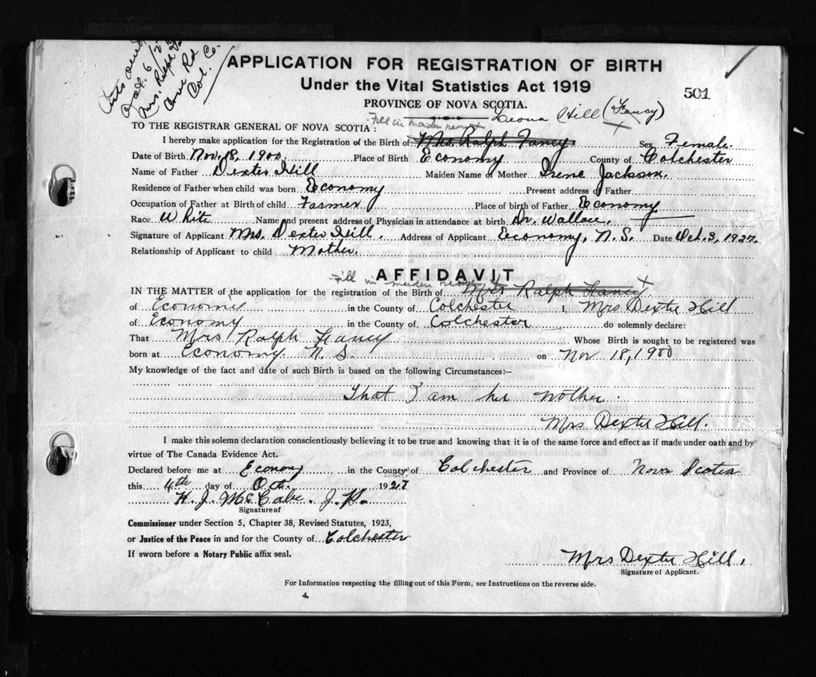 Mrs. Ralph
Col. Co.
APPLICATION FOR REGISTRATION OF BIRTH
Under the Vital Statistics Act 1919
501
PROVINCE OF NOVA SCOTIA.
Fill in maiden name Leona Hill (Fancy)
TO THE REGISTRAR GENERAL OF NOVA SCOTIA:
I hereby make application for the Registration of the Birth of Mrs. Ralph Fancy Sex Female.
Date of Birth Nov. 18, 1900. Place of Birth Economy County of Colchester
Name of Father Dexter Hill Maiden Name of Mother Irene Jackson.
Residence of Father when child was born Economy Present address of Father
Occupation of Father at Birth of child Farmer Place of birth of Father Economy
Race White Name and present address of Physician in attendance at birth Dr. Wallace,
Signature of Applicant Mrs. Dexter Hill. Address of Applicant Economy, N.S. Date Oct. 3, 1927.
Relationship of Applicant to child Mother.
AFFIDAVIT
Fill in maiden name
IN THE MATTER of the application for the registration of the Birth of Mrs Ralph Fancy x
of Economy in the County of Colchester I, Mrs Dexter Hill
of Economy in the County of Colchester do solemnly declare:
That Mrs. Ralph Fancy Whose Birth is sought to be registered was
born at Economy N.S. on Nov 18, 1900
My knowledge of the fact and date of such Birth is based on the following Circumstances:—
That I am her Mother.
Mrs Dexter Hill.
I make this solemn declaration conscientiously believing it to be true and knowing that it is of the same force and effect as if made under oath and by
virtue of The Canada Evidence Act.
Declared before me at Economy in the County of Colchester and Province of Nova Scotia
this 4th day of Oct. 1927
H. J. McCabe. J.P.
Signature of
Commissioner under Section 5, Chapter 38, Revised Statutes, 1923,
or Justice of the Peace in and for the County of Colchester
If sworn before a Notary Public affix seal.
Mrs Dexter Hill,
Signature of Applicant.
For Information respecting the filling out of this Form, see Instructions on the reverse side.